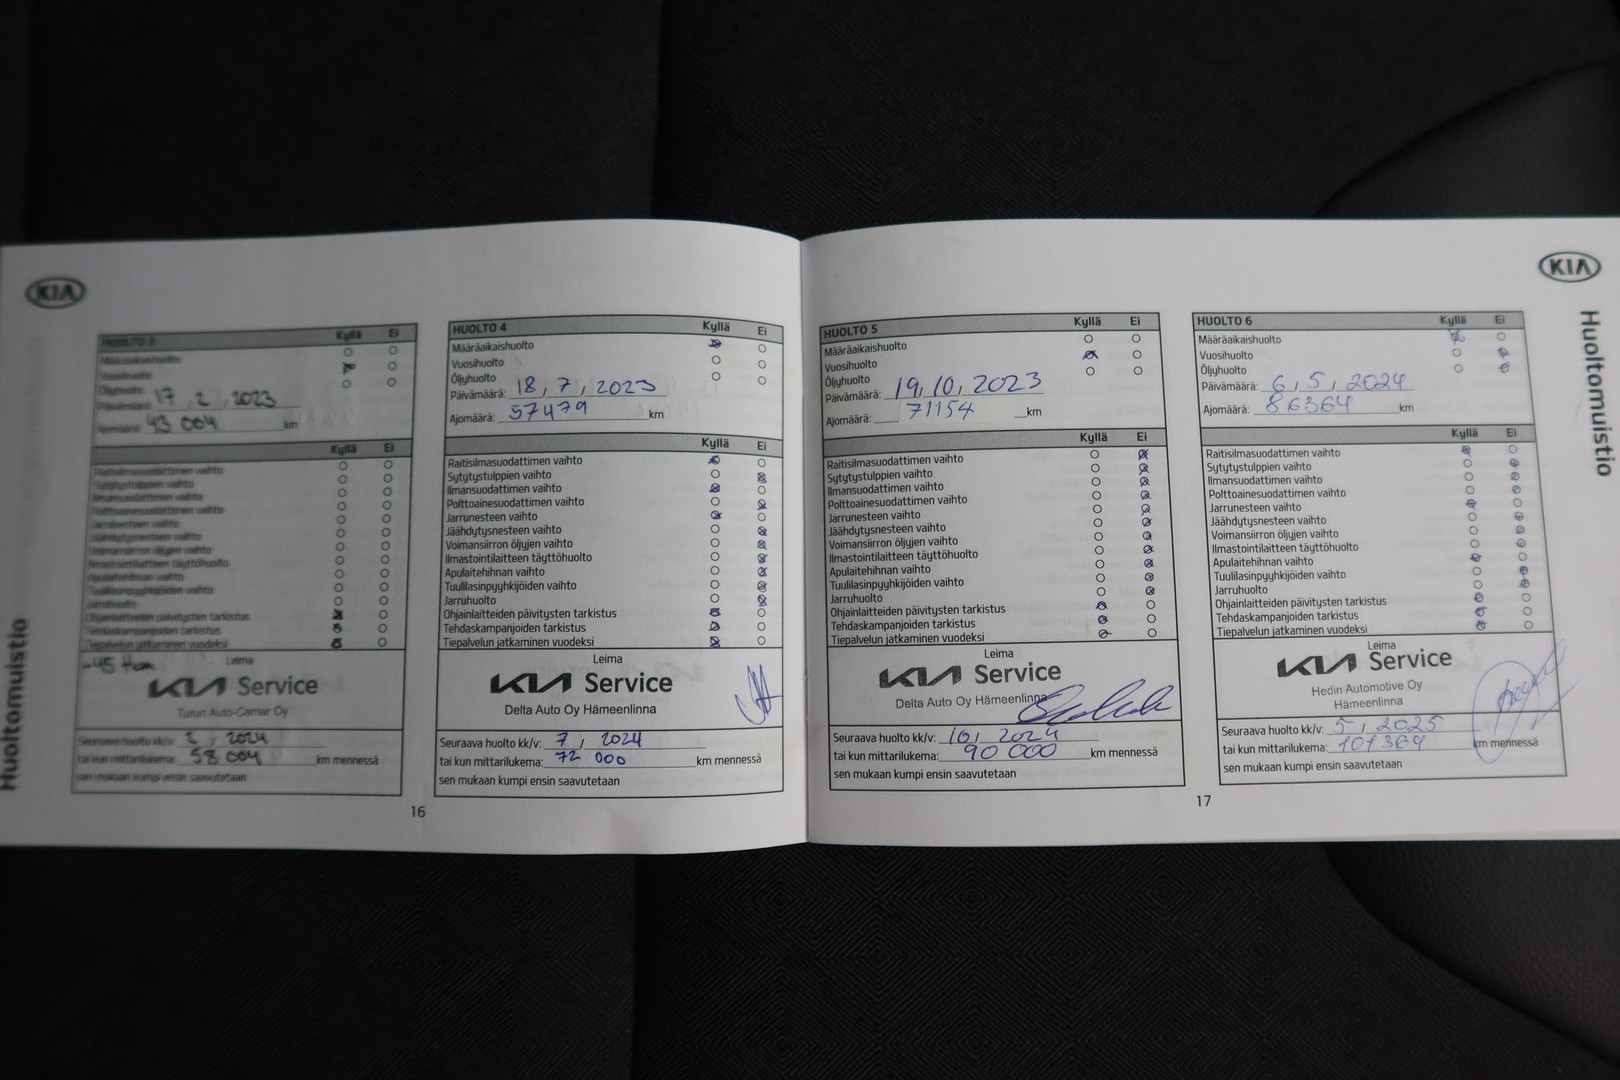 KIA
Huoltomuistio
HUOLTO 3
Kyllä Ei
Määräaikaishuolto
Vuosihuolto
Öljyhuolto
Päivämäärä: 17, 2, 2023
Ajomäärä: 43 004 km
Kyllä Ei
Raitisilmasuodattimen vaihto
Sytytystulppien vaihto
Ilmansuodattimen vaihto
Polttoainesuodattimen vaihto
Jarrunesteen vaihto
Jäähdytysnesteen vaihto
Voimansiirron öljyjen vaihto
Ilmastointilaitteen täyttöhuolto
Apulaitehihnan vaihto
Tuulilasinpyyhkijöiden vaihto
Jarruhuolto
Ohjainlaitteiden päivitysten tarkistus
Tehdaskampanjoiden tarkistus
Tiepalvelun jatkaminen vuodeksi
Leima
KIA Service
Turun Auto-Center Oy
Seuraava huolto kk/v: 2, 2024
tai kun mittarilukema: 58 004 km mennessä
sen mukaan kumpi ensin saavutetaan
HUOLTO 4
Kyllä Ei
Määräaikaishuolto
Vuosihuolto
Öljyhuolto
Päivämäärä: 18, 7, 2023
Ajomäärä: 57479 km
Kyllä Ei
Raitisilmasuodattimen vaihto
Sytytystulppien vaihto
Ilmansuodattimen vaihto
Polttoainesuodattimen vaihto
Jarrunesteen vaihto
Jäähdytysnesteen vaihto
Voimansiirron öljyjen vaihto
Ilmastointilaitteen täyttöhuolto
Apulaitehihnan vaihto
Tuulilasinpyyhkijöiden vaihto
Jarruhuolto
Ohjainlaitteiden päivitysten tarkistus
Tehdaskampanjoiden tarkistus
Tiepalvelun jatkaminen vuodeksi
Leima
KIA Service
Delta Auto Oy Hämeenlinna
Seuraava huolto kk/v: 7, 2024
tai kun mittarilukema: 72 000 km mennessä
sen mukaan kumpi ensin saavutetaan
16
HUOLTO 5
Kyllä Ei
Määräaikaishuolto
Vuosihuolto
Öljyhuolto
Päivämäärä: 19, 10, 2023
Ajomäärä: 71154 km
Kyllä Ei
Raitisilmasuodattimen vaihto
Sytytystulppien vaihto
Ilmansuodattimen vaihto
Polttoainesuodattimen vaihto
Jarrunesteen vaihto
Jäähdytysnesteen vaihto
Voimansiirron öljyjen vaihto
Ilmastointilaitteen täyttöhuolto
Apulaitehihnan vaihto
Tuulilasinpyyhkijöiden vaihto
Jarruhuolto
Ohjainlaitteiden päivitysten tarkistus
Tehdaskampanjoiden tarkistus
Tiepalvelun jatkaminen vuodeksi
Leima
KIA Service
Delta Auto Oy Hämeenlinna
Seuraava huolto kk/v: 10, 2024
tai kun mittarilukema: 90 000 km mennessä
sen mukaan kumpi ensin saavutetaan
KIA
Huoltomuistio
HUOLTO 6
Kyllä Ei
Määräaikaishuolto
Vuosihuolto
Öljyhuolto
Päivämäärä: 6, 5, 2024
Ajomäärä: 86364 km
Kyllä Ei
Raitisilmasuodattimen vaihto
Sytytystulppien vaihto
Ilmansuodattimen vaihto
Polttoainesuodattimen vaihto
Jarrunesteen vaihto
Jäähdytysnesteen vaihto
Voimansiirron öljyjen vaihto
Ilmastointilaitteen täyttöhuolto
Apulaitehihnan vaihto
Tuulilasinpyyhkijöiden vaihto
Jarruhuolto
Ohjainlaitteiden päivitysten tarkistus
Tehdaskampanjoiden tarkistus
Tiepalvelun jatkaminen vuodeksi
Leima
KIA Service
Hedin Automotive Oy
Hämeenlinna
Seuraava huolto kk/v: 5, 2025
tai kun mittarilukema: 101364 km mennessä
sen mukaan kumpi ensin saavutetaan
17